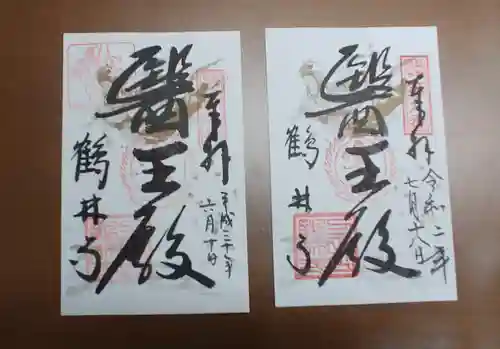 奉拝
平成三十年
六月十日
醫王殿
鶴林寺
奉拝
令和二年
七月十八日
醫王殿
鶴林寺